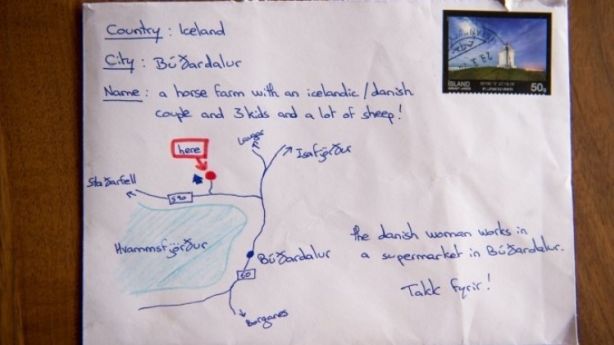 Country: Iceland
City: Búðardalur
Name: a horse farm with an icelandic/danish
couple and 3 kids and a lot of sheep!
ÍSLAND
50g
here
Laugar
Ísafjörður
Staðarfell
590
Hvammsfjörður
Búðardalur
60
Borganes
the danish woman works in
a supermarket in Búðardalur.
Takk fyrir!